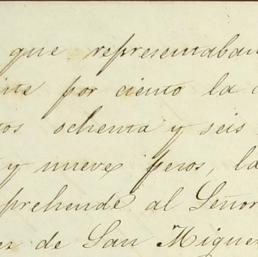 que representaban
por ciento la
ochenta y seis
y nueve pesos, la
prehende al Señor
de San Miguel